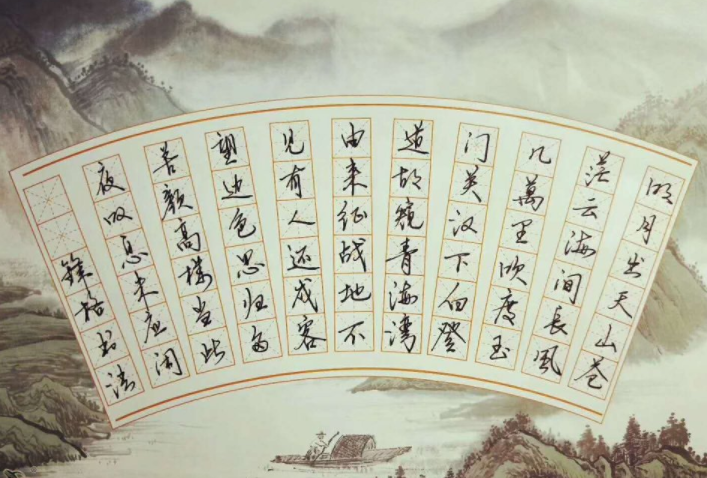 明月出天山苍
茫云海间長风
几萬里吹度玉
门关汉下白登
道胡窥青海湾
由来征战地不
见有人还戍客
望边色思归多
苦颜高楼当此
夜叹息未应闲
书法